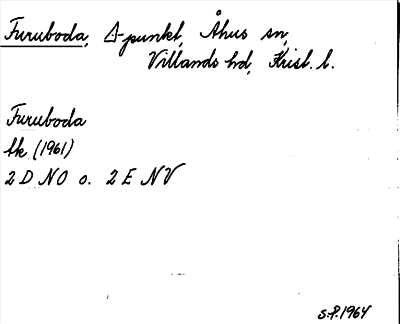 Furuboda, Δ-punkt, Åhus sn,
Villands hd, Krist. l.
Furuboda
Ek (1961)
2 D NO o. 2 E NV
S.P. 1964